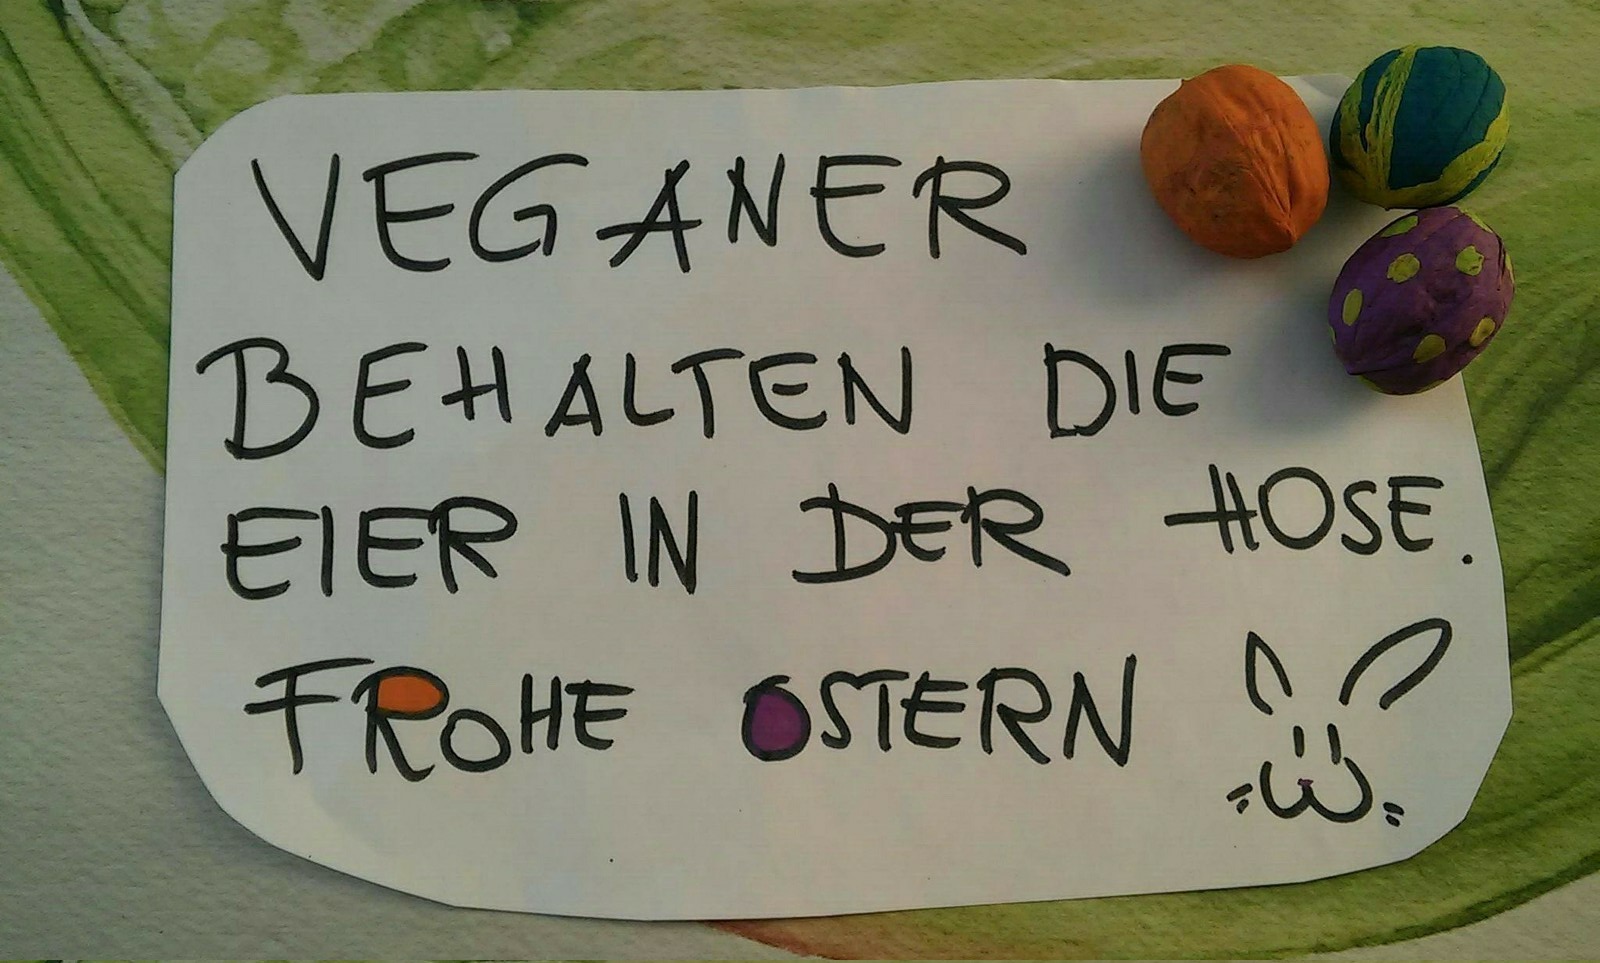 VEGANER
BEHALTEN DIE
EIER IN DER HOSE.
FROHE OSTERN